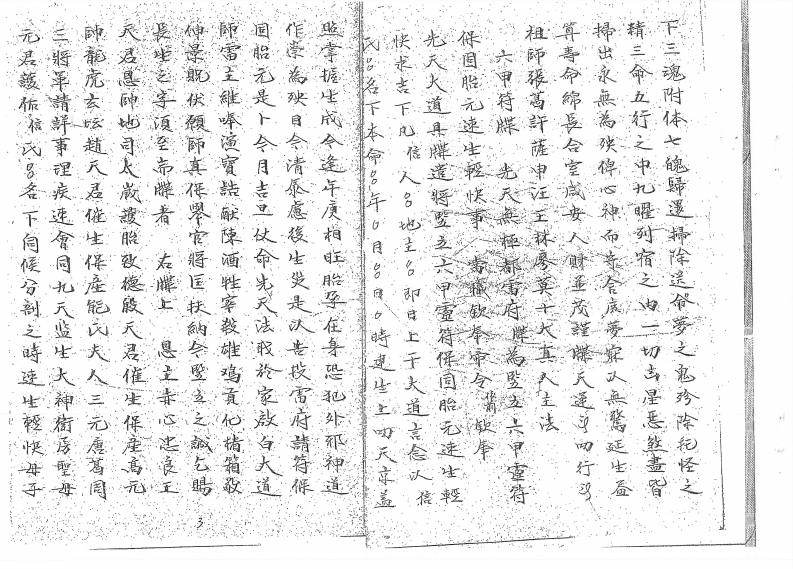 下三魂附体七魄歸還掃除送命夢之鬼殄除秏怪之
精三命五行之中九曜列宿之内一切去星惡煞盡皆
掃出永無為殃俾心神而寺令底夢寐以無驚延生益
算寿命綿長合室咸安人財並茂謹牒天運
祖師張葛許薩申汪王林廖莫十大真人主法
六甲符牒 先天無極都雷府 牒為竪立六甲靈符
保固胎元速生輕快事 當職欽奉帝令 欽奉
先天大道具牒遣將竪立六甲靈符保固胎元速生輕
快求吉下凡信人 地主 即日上干大道言念以信
氏 名下本命 年 月 日 時 生上叨天京益
監掌握生成今逢年庚相旺胎孕在身恐犯外邪神道
作祟為殃目今清慮後生災是以告投雷府請符保
固胎元是卜今月吉旦仗命先天法戝於家啟白大道
師雷主維唪演寶誥献陳酒牲宰殺雄鸡貢化楮箱敬
伸景貺伏願師真保舉官將匡扶納今竪立之誠乞賜
長生之字須至咼牒者 右牒上 恩主赤心忠良王
天君恩帥地司太歲護胎致德殷天君催生保產高元
帥龍虎玄坛趙天君催生保產熊氏夫人三元唐葛周
三將軍請詳事理疾速會同九天監生大神衛房聖母
元君護佑信氏 名下伺候分割之時速生輕快母子
3